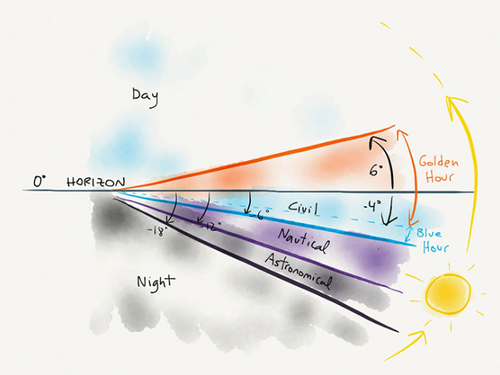 Day
6°
Golden
Hour
0° HORIZON
-4°
Civil
-6°
Blue
Hour
-12°
-18°
Nautical
Astronomical
Night